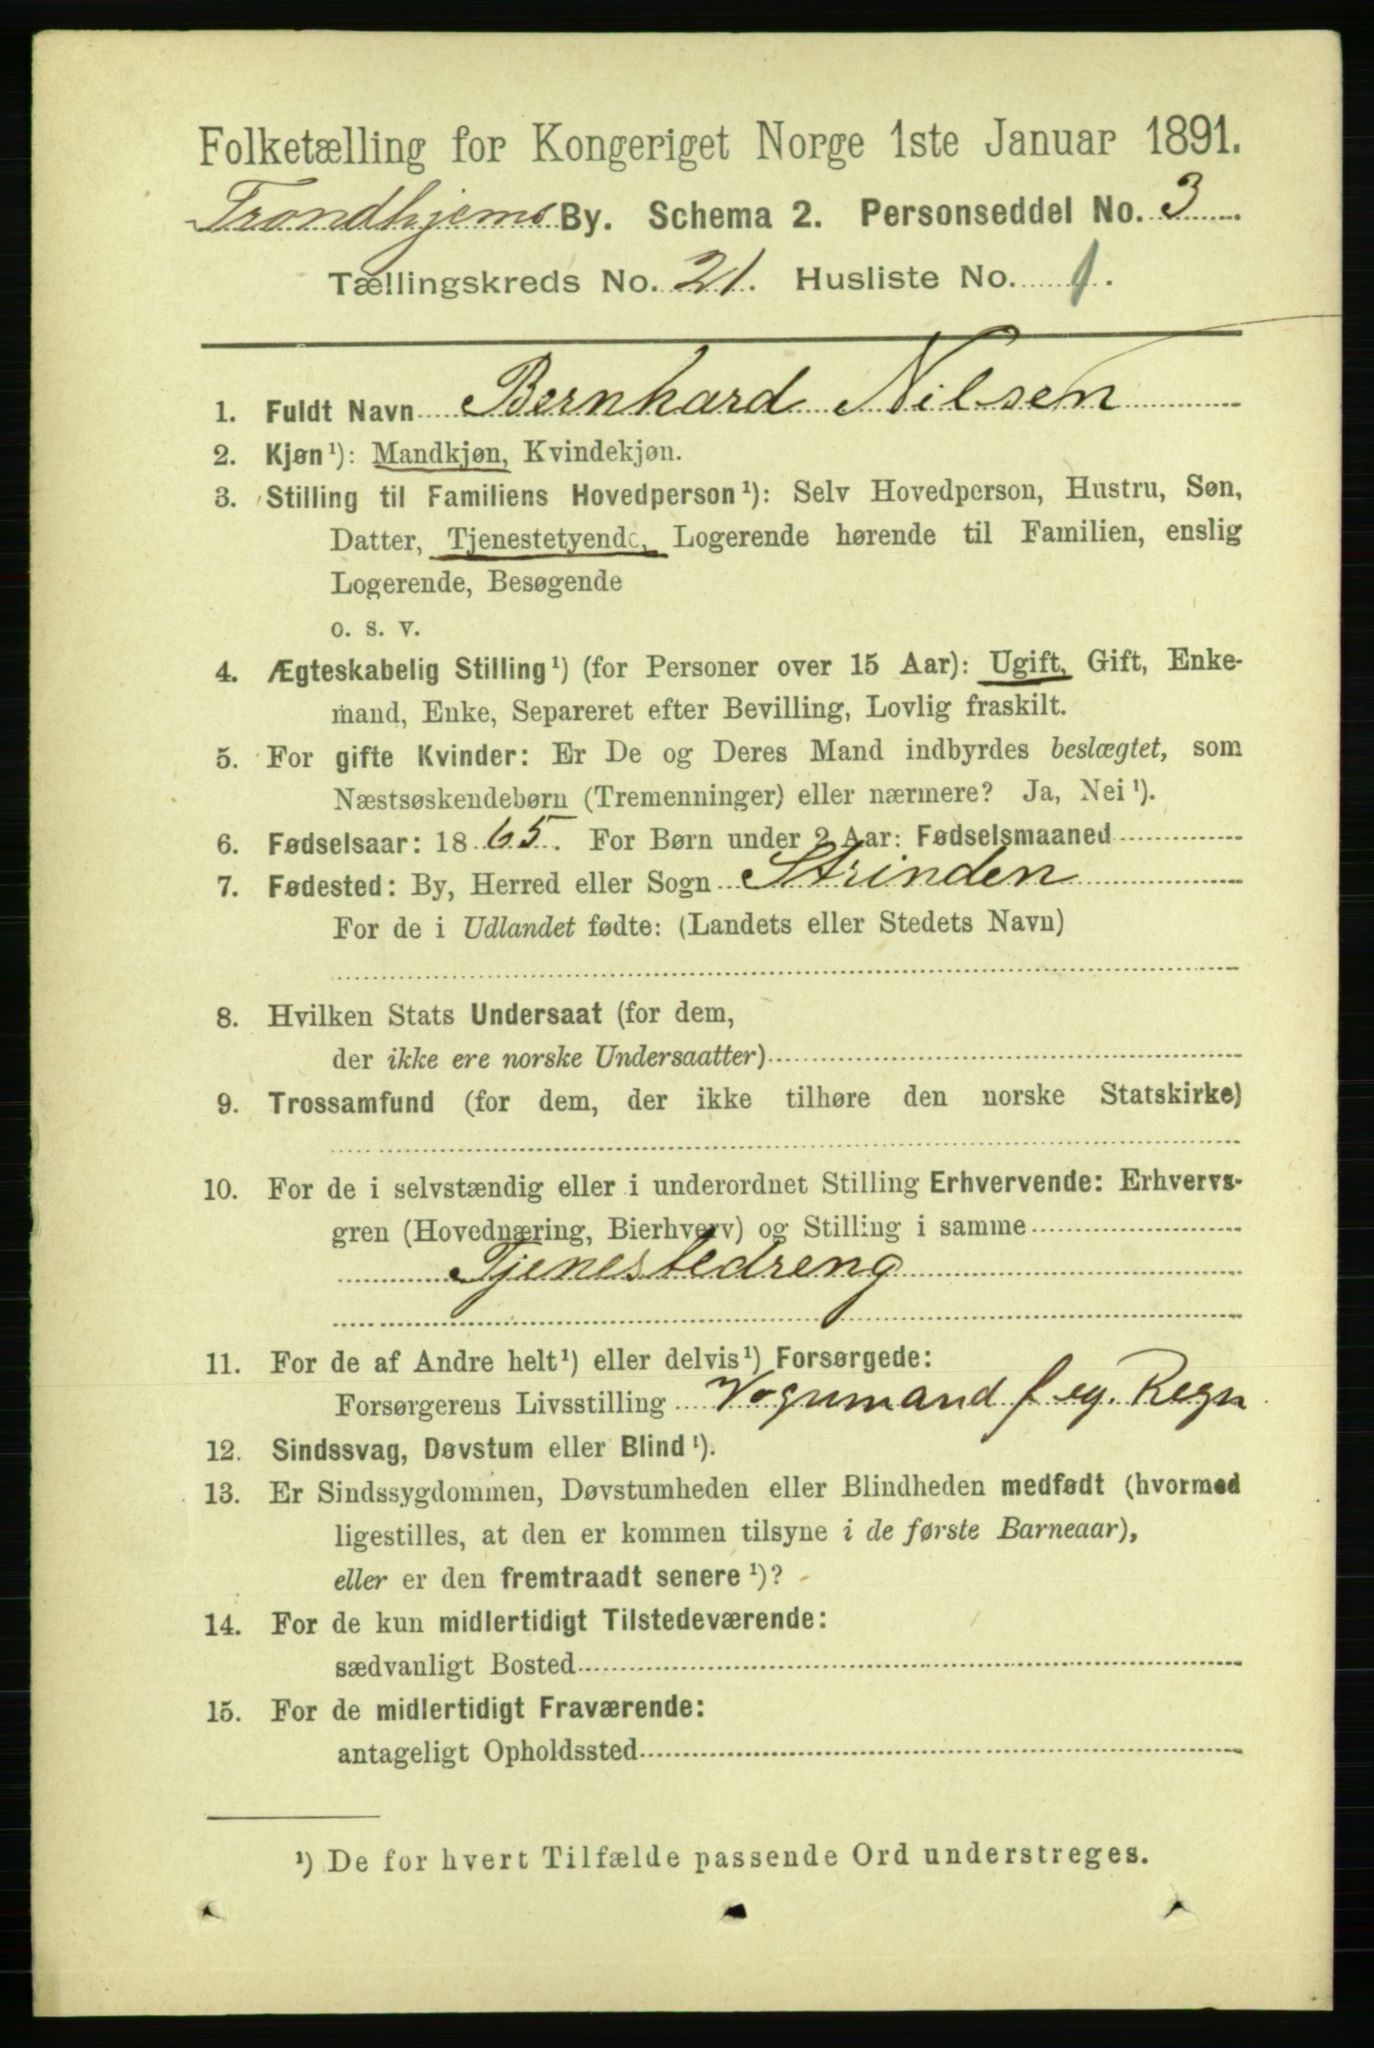 Folketælling for Kongeriget Norge 1ste Januar 1891.
Trondhjems By. Schema 2. Personseddel No. 3
Tællingskreds No. 21. Husliste No. 1.
1. Fuldt Navn Bernhard Nilsen
2. Kjøn ¹): Mandkjøn, Kvindekjøn.
3. Stilling til Familiens Hovedperson ¹): Selv Hovedperson, Hustru, Søn,
Datter, Tjenestetyende, Logerende hørende til Familien, enslig
Logerende, Besøgende
o. s. v.
4. Ægteskabelig Stilling ¹) (for Personer over 15 Aar): Ugift, Gift, Enke-
mand, Enke, Separeret efter Bevilling, Lovlig fraskilt.
5. For gifte Kvinder: Er De og Deres Mand indbyrdes beslægtet, som
Næstsøskendebørn (Tremenninger) eller nærmere? Ja, Nei ¹).
6. Fødselsaar: 1865. For Børn under 2 Aar: Fødselsmaaned
7. Fødested: By, Herred eller Sogn Strinden
For de i Udlandet fødte: (Landets eller Stedets Navn)
8. Hvilken Stats Undersaat (for dem,
der ikke ere norske Undersaatter)
9. Trossamfund (for dem, der ikke tilhøre den norske Statskirke)
10. For de i selvstændig eller i underordnet Stilling Erhvervende: Erhvervs-
gren (Hovednæring, Bierhverv) og Stilling i samme
Tjenestedreng
11. For de af Andre helt ¹) eller delvis ¹) Forsørgede:
Forsørgerens Livsstilling Vognmand f eg. Regn
12. Sindssvag, Døvstum eller Blind ¹).
13. Er Sindssygdommen, Døvstumheden eller Blindheden medfødt (hvormed
ligestilles, at den er kommen tilsyne i de første Barneaar),
eller er den fremtraadt senere ¹)?
14. For de kun midlertidigt Tilstedeværende:
sædvanligt Bosted
15. For de midlertidigt Fraværende:
antageligt Opholdssted
¹) De for hvert Tilfælde passende Ord understreges.